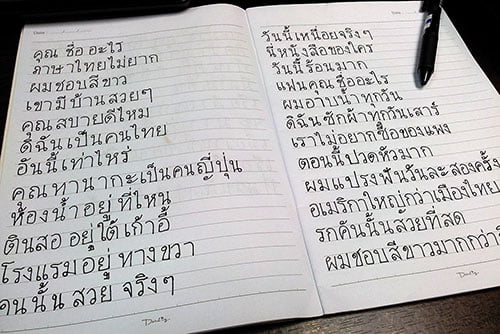 คุณ ชื่อ อะไร
ภาษาไทยไม่ยาก
ผมชอบสีขาว
เขามีบ้านสวยๆ
คุณสบายดีไหม
ดิฉันเป็นคนไทย
อันนี้เท่าไหร่
คุณทานากะเป็นคนญี่ปุ่น
ห้องน้ำอยู่ที่ไหน
ดินสอ อยู่ใต้เก้าอี้
โรงแรมอยู่ทางขวา
คนนั้น สวย จริงๆ
วันนี้เหนื่อยจริงๆ
นี่หนังสือของใคร
วันนี้ร้อนมาก
แฟนคุณชื่ออะไร
ผมอาบน้ำทุกวัน
ดิฉันซักผ้าทุกวันเสาร์
เราไม่อยากซื้อของแพง
ตอนนี้ปวดหัวมาก
ผมแปรงฟันวันละสองครั้ง
อเมริกาใหญ่กว่าเมืองไทย
รถคันนั้นสวยที่สุด
ผมชอบสีขาวมากกว่า